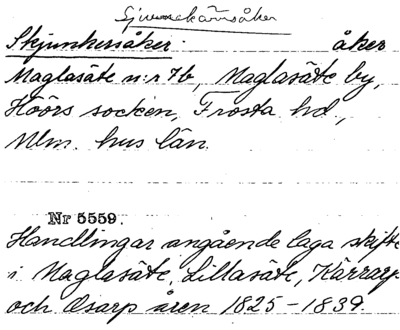 Skjunkersåker: åker
Maglasäte n:r 7b, Maglasäte by,
Höörs socken, Frosta hd.,
Mlm. hus län.
Nr 5559.
Handlingar angående laga skifte
i Maglasäte, Lillasäte, Kärrarp
och Osarp åren 1825-1839.